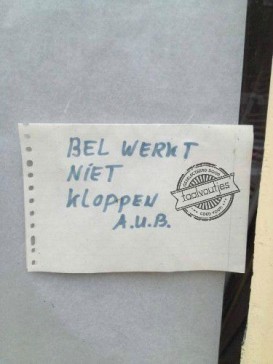 BEL WERKT
NIET
KLOPPEN
A.U.B.
taalvoutjes